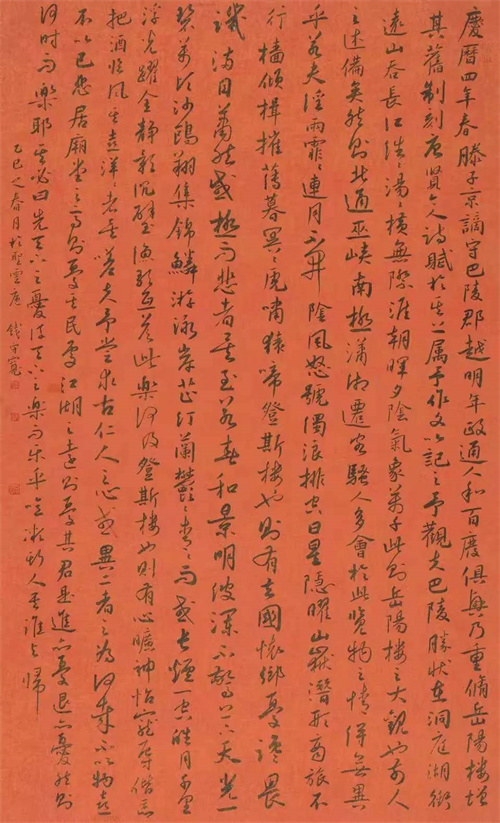 慶曆四年春滕子京謫守巴陵郡越明年政通人和百廢俱興乃重脩岳陽樓增
其舊制刻唐賢今人詩賦於其上屬予作文以記之予觀夫巴陵勝狀在洞庭湖銜
遠山吞長江浩浩湯湯橫無際涯朝暉夕陰氣象萬千此則岳陽樓之大觀也前人
之述備矣然則北通巫峽南極瀟湘遷客騷人多會於此覽物之情得無異
乎若夫淫雨霏霏連月不開陰風怒號濁浪排空日星隱曜山嶽潛形商旅不
行檣傾楫摧薄暮冥冥虎嘯猿啼登斯樓也則有去國懷鄉憂讒畏
譏滿目蕭然感極而悲者矣至若春和景明波瀾不驚上下天光一
碧萬頃沙鷗翔集錦鱗游泳岸芷汀蘭鬱鬱青青而或長煙一空皓月千里
浮光躍金靜影沉璧漁歌互答此樂何極登斯樓也則有心曠神怡寵辱偕忘
把酒臨風其喜洋洋者矣嗟夫予嘗求古仁人之心或異二者之為何哉不以物喜
不以己悲居廟堂之高則憂其民處江湖之遠則憂其君是進亦憂退亦憂然則
何時而樂耶其必曰先天下之憂後天下之樂而乐乎噫微斯人吾誰與歸
乙巳之春月於